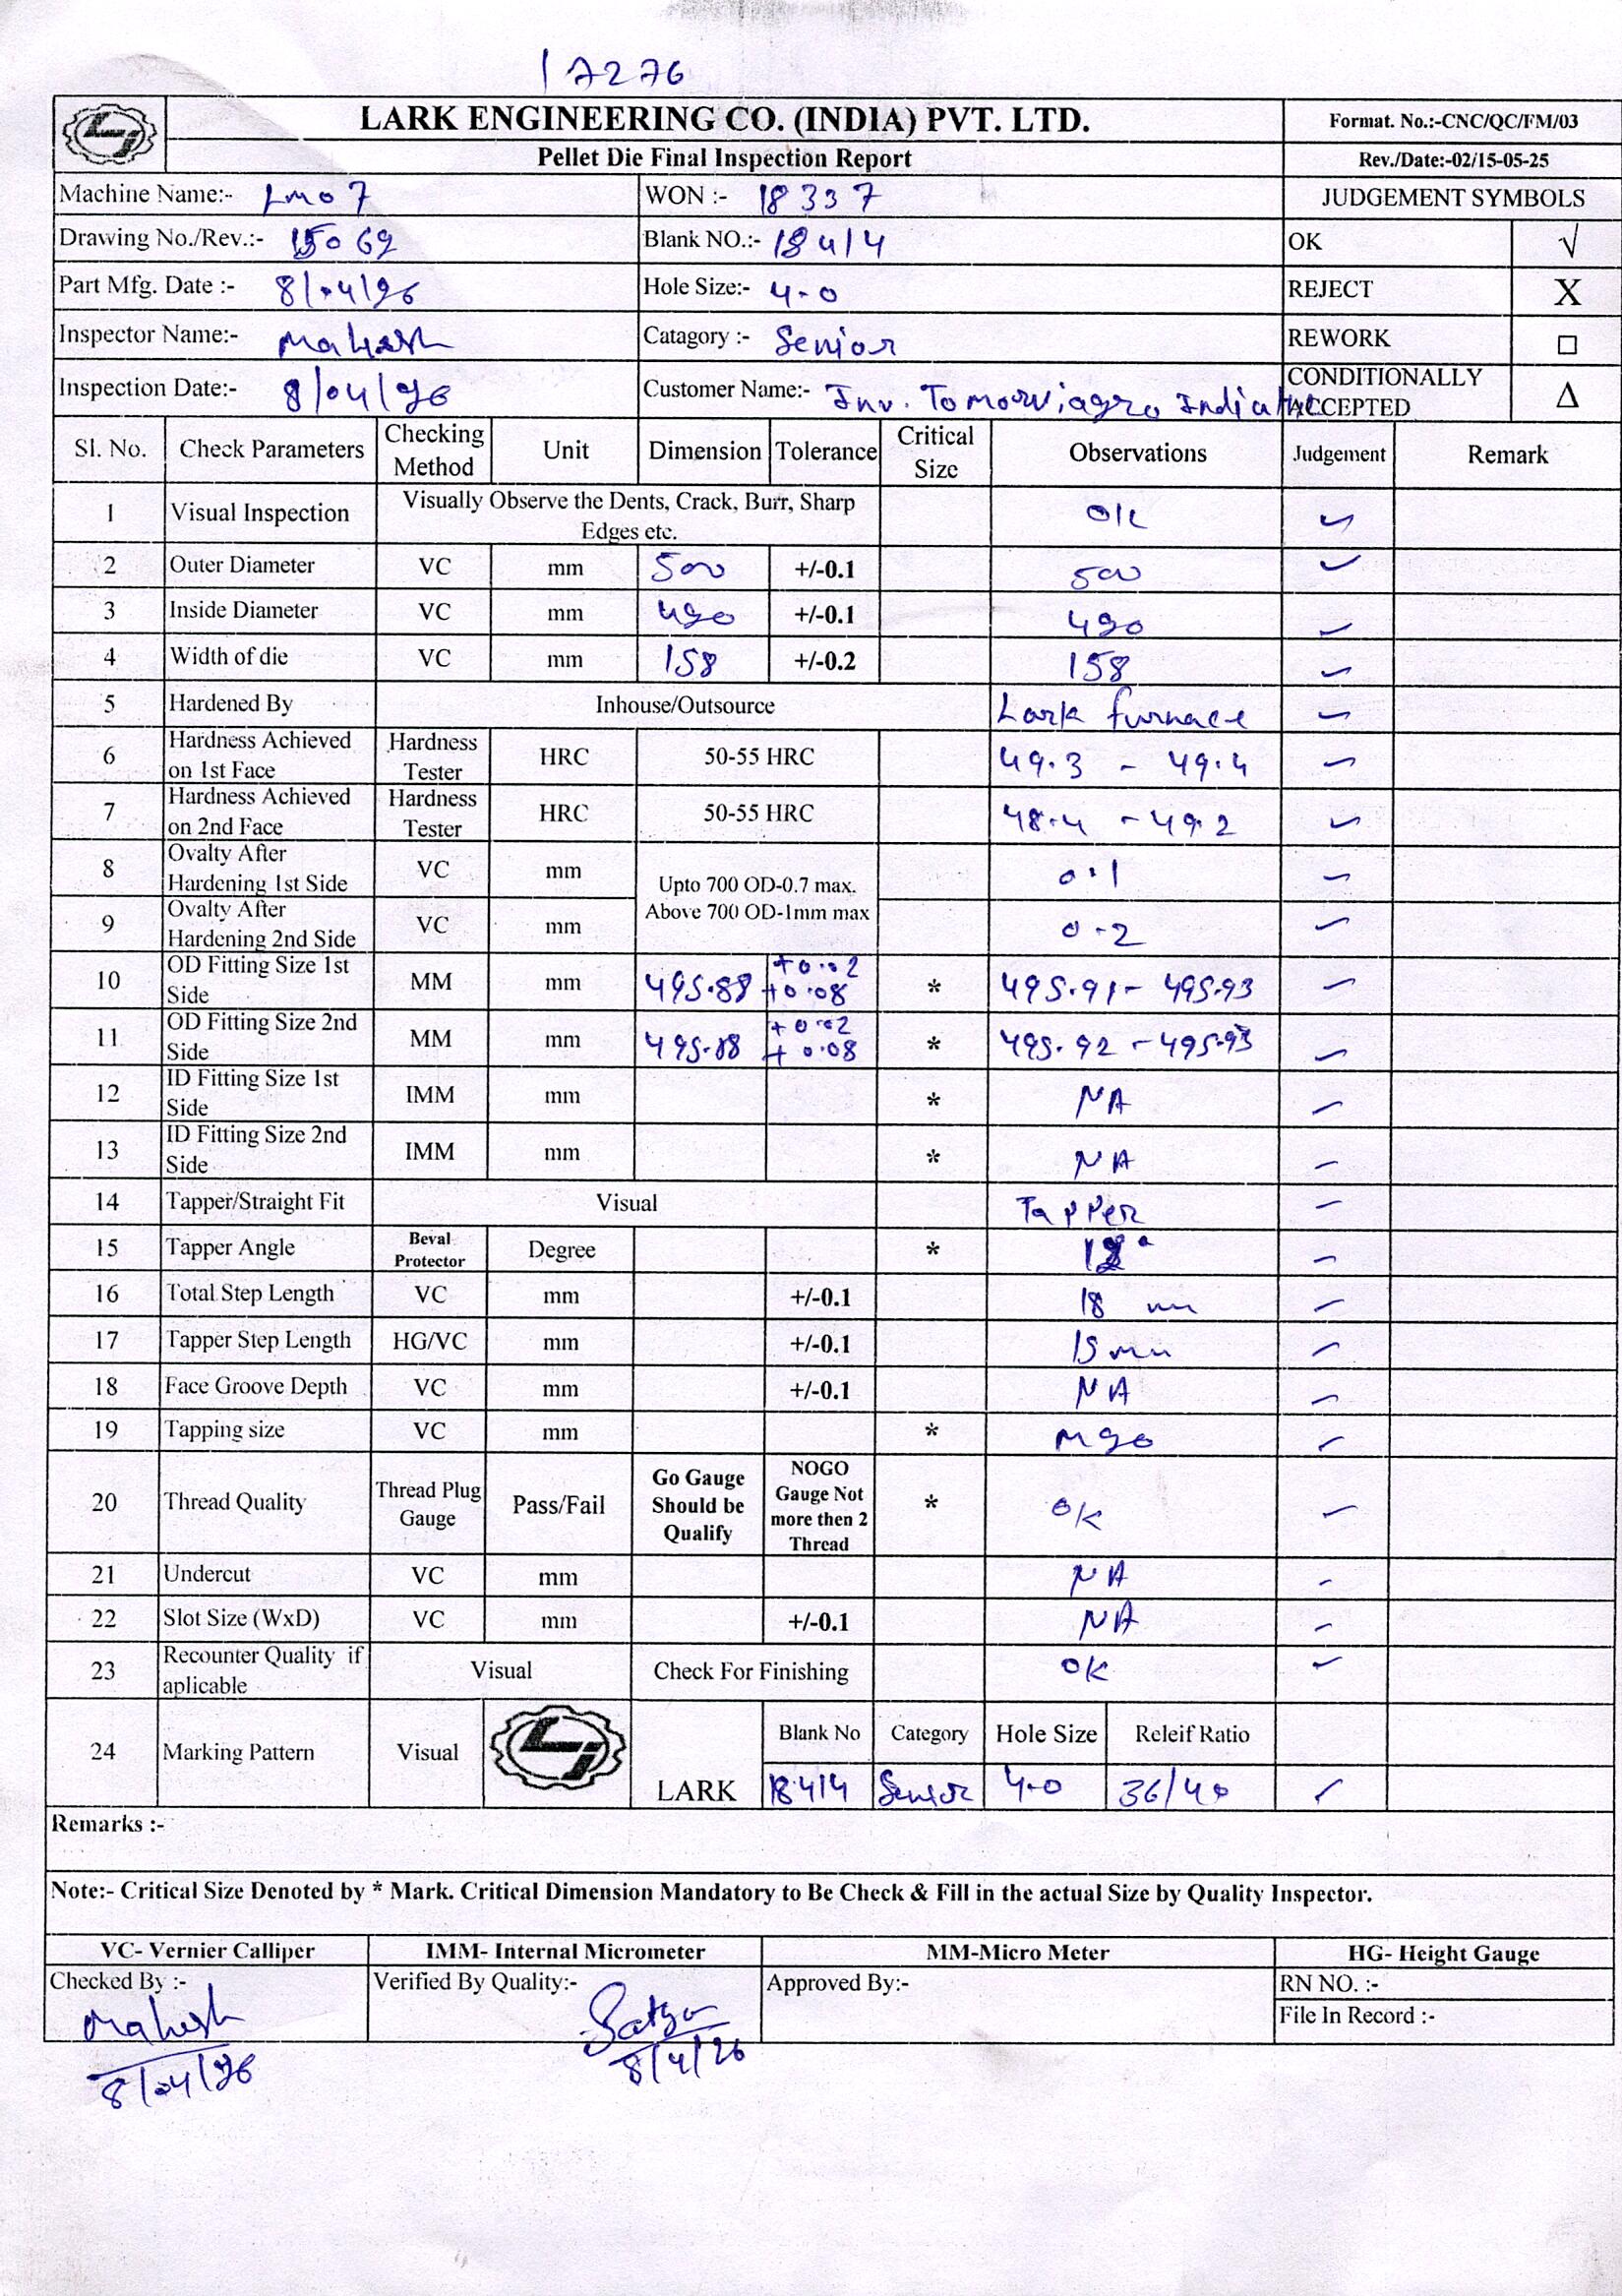 17276
LARK ENGINEERING CO. (INDIA) PVT. LTD.
Format. No.:-CNC/QC/FM/03
Pellet Die Final Inspection Report
Rev./Date:-02/15-05-25
Machine Name:- Lmo7 WON :- 18337 JUDGEMENT SYMBOLS
Drawing No./Rev.:- 15069 Blank NO.:- 18414 OK √
Part Mfg. Date :- 8/04/26 Hole Size:- 4.0 REJECT X
Inspector Name:- Mahesh Catagory :- Senior REWORK □
Inspection Date:- 8/04/26 Customer Name:- India CONDITIONALLY ACCEPTED Δ
Sl. No. Check Parameters Checking Method Unit Dimension Tolerance Critical Size Observations Judgement Remark
1 Visual Inspection Visually Observe the Dents, Crack, Burr, Sharp Edges etc. OK ✓
2 Outer Diameter VC mm 500 +/-0.1 500 ✓
3 Inside Diameter VC mm 490 +/-0.1 490 ✓
4 Width of die VC mm 158 +/-0.2 158 ✓
5 Hardened By Inhouse/Outsource Lark furnace ✓
6 Hardness Achieved on 1st Face Hardness Tester HRC 50-55 HRC 49.3 - 49.4 ✓
7 Hardness Achieved on 2nd Face Hardness Tester HRC 50-55 HRC 48.4 - 49.2 ✓
8 Ovalty After Hardening 1st Side VC mm Upto 700 OD-0.7 max. Above 700 OD-1mm max 0.1 ✓
9 Ovalty After Hardening 2nd Side VC mm 0.2 ✓
10 OD Fitting Size 1st Side MM mm 495.88 +0.02 +0.08 * 495.91 - 495.93 ✓
11 OD Fitting Size 2nd Side MM mm 495.88 +0.02 +0.08 * 495.92 - 495.93 ✓
12 ID Fitting Size 1st Side IMM mm * NA ✓
13 ID Fitting Size 2nd Side IMM mm * NA ✓
14 Tapper/Straight Fit Visual Tapper ✓
15 Tapper Angle Beval Protector Degree * ✓
16 Total Step Length VC mm +/-0.1 18 mm ✓
17 Tapper Step Length HG/VC mm +/-0.1 15 mm ✓
18 Face Groove Depth VC mm +/-0.1 NA ✓
19 Tapping size VC mm * M20 ✓
20 Thread Quality Thread Plug Gauge Pass/Fail Go Gauge Should be Qualify NOGO Gauge Not more then 2 Thread * OK ✓
21 Undercut VC mm NA ✓
22 Slot Size (WxD) VC mm +/-0.1 NA ✓
23 Recounter Quality if aplicable Visual Check For Finishing OK ✓
24 Marking Pattern Visual LARK Blank No Category Hole Size Releif Ratio
18414 Senior 4.0 36/40 ✓
Remarks :-
Note:- Critical Size Denoted by * Mark. Critical Dimension Mandatory to Be Check & Fill in the actual Size by Quality Inspector.
VC- Vernier Calliper IMM- Internal Micrometer MM-Micro Meter HG- Height Gauge
Checked By :- Verified By Quality:- Approved By:- RN NO. :-
File In Record :-
Mahesh Satya
8/04/26 8/4/26